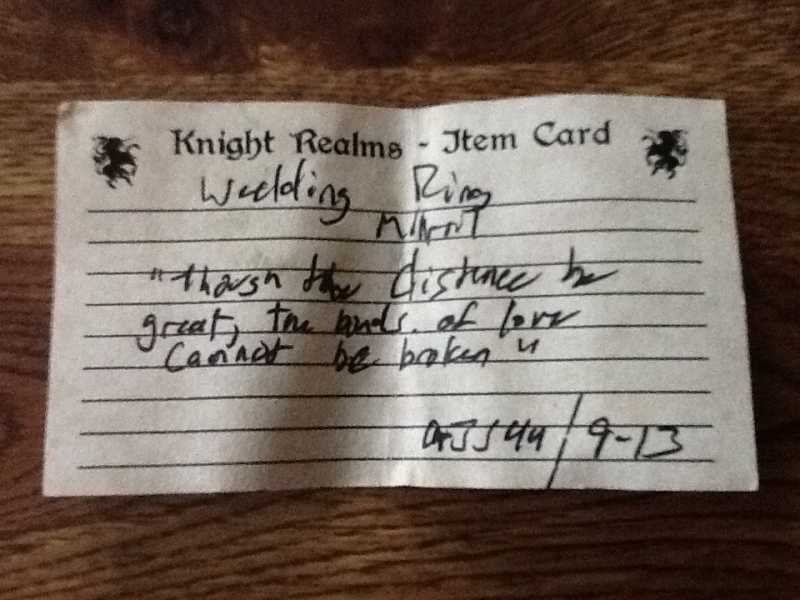 Knight Realms - Item Card
Wedding Ring
"though the distance be
great, the bonds of love
cannot be broken"
44 / 9-13